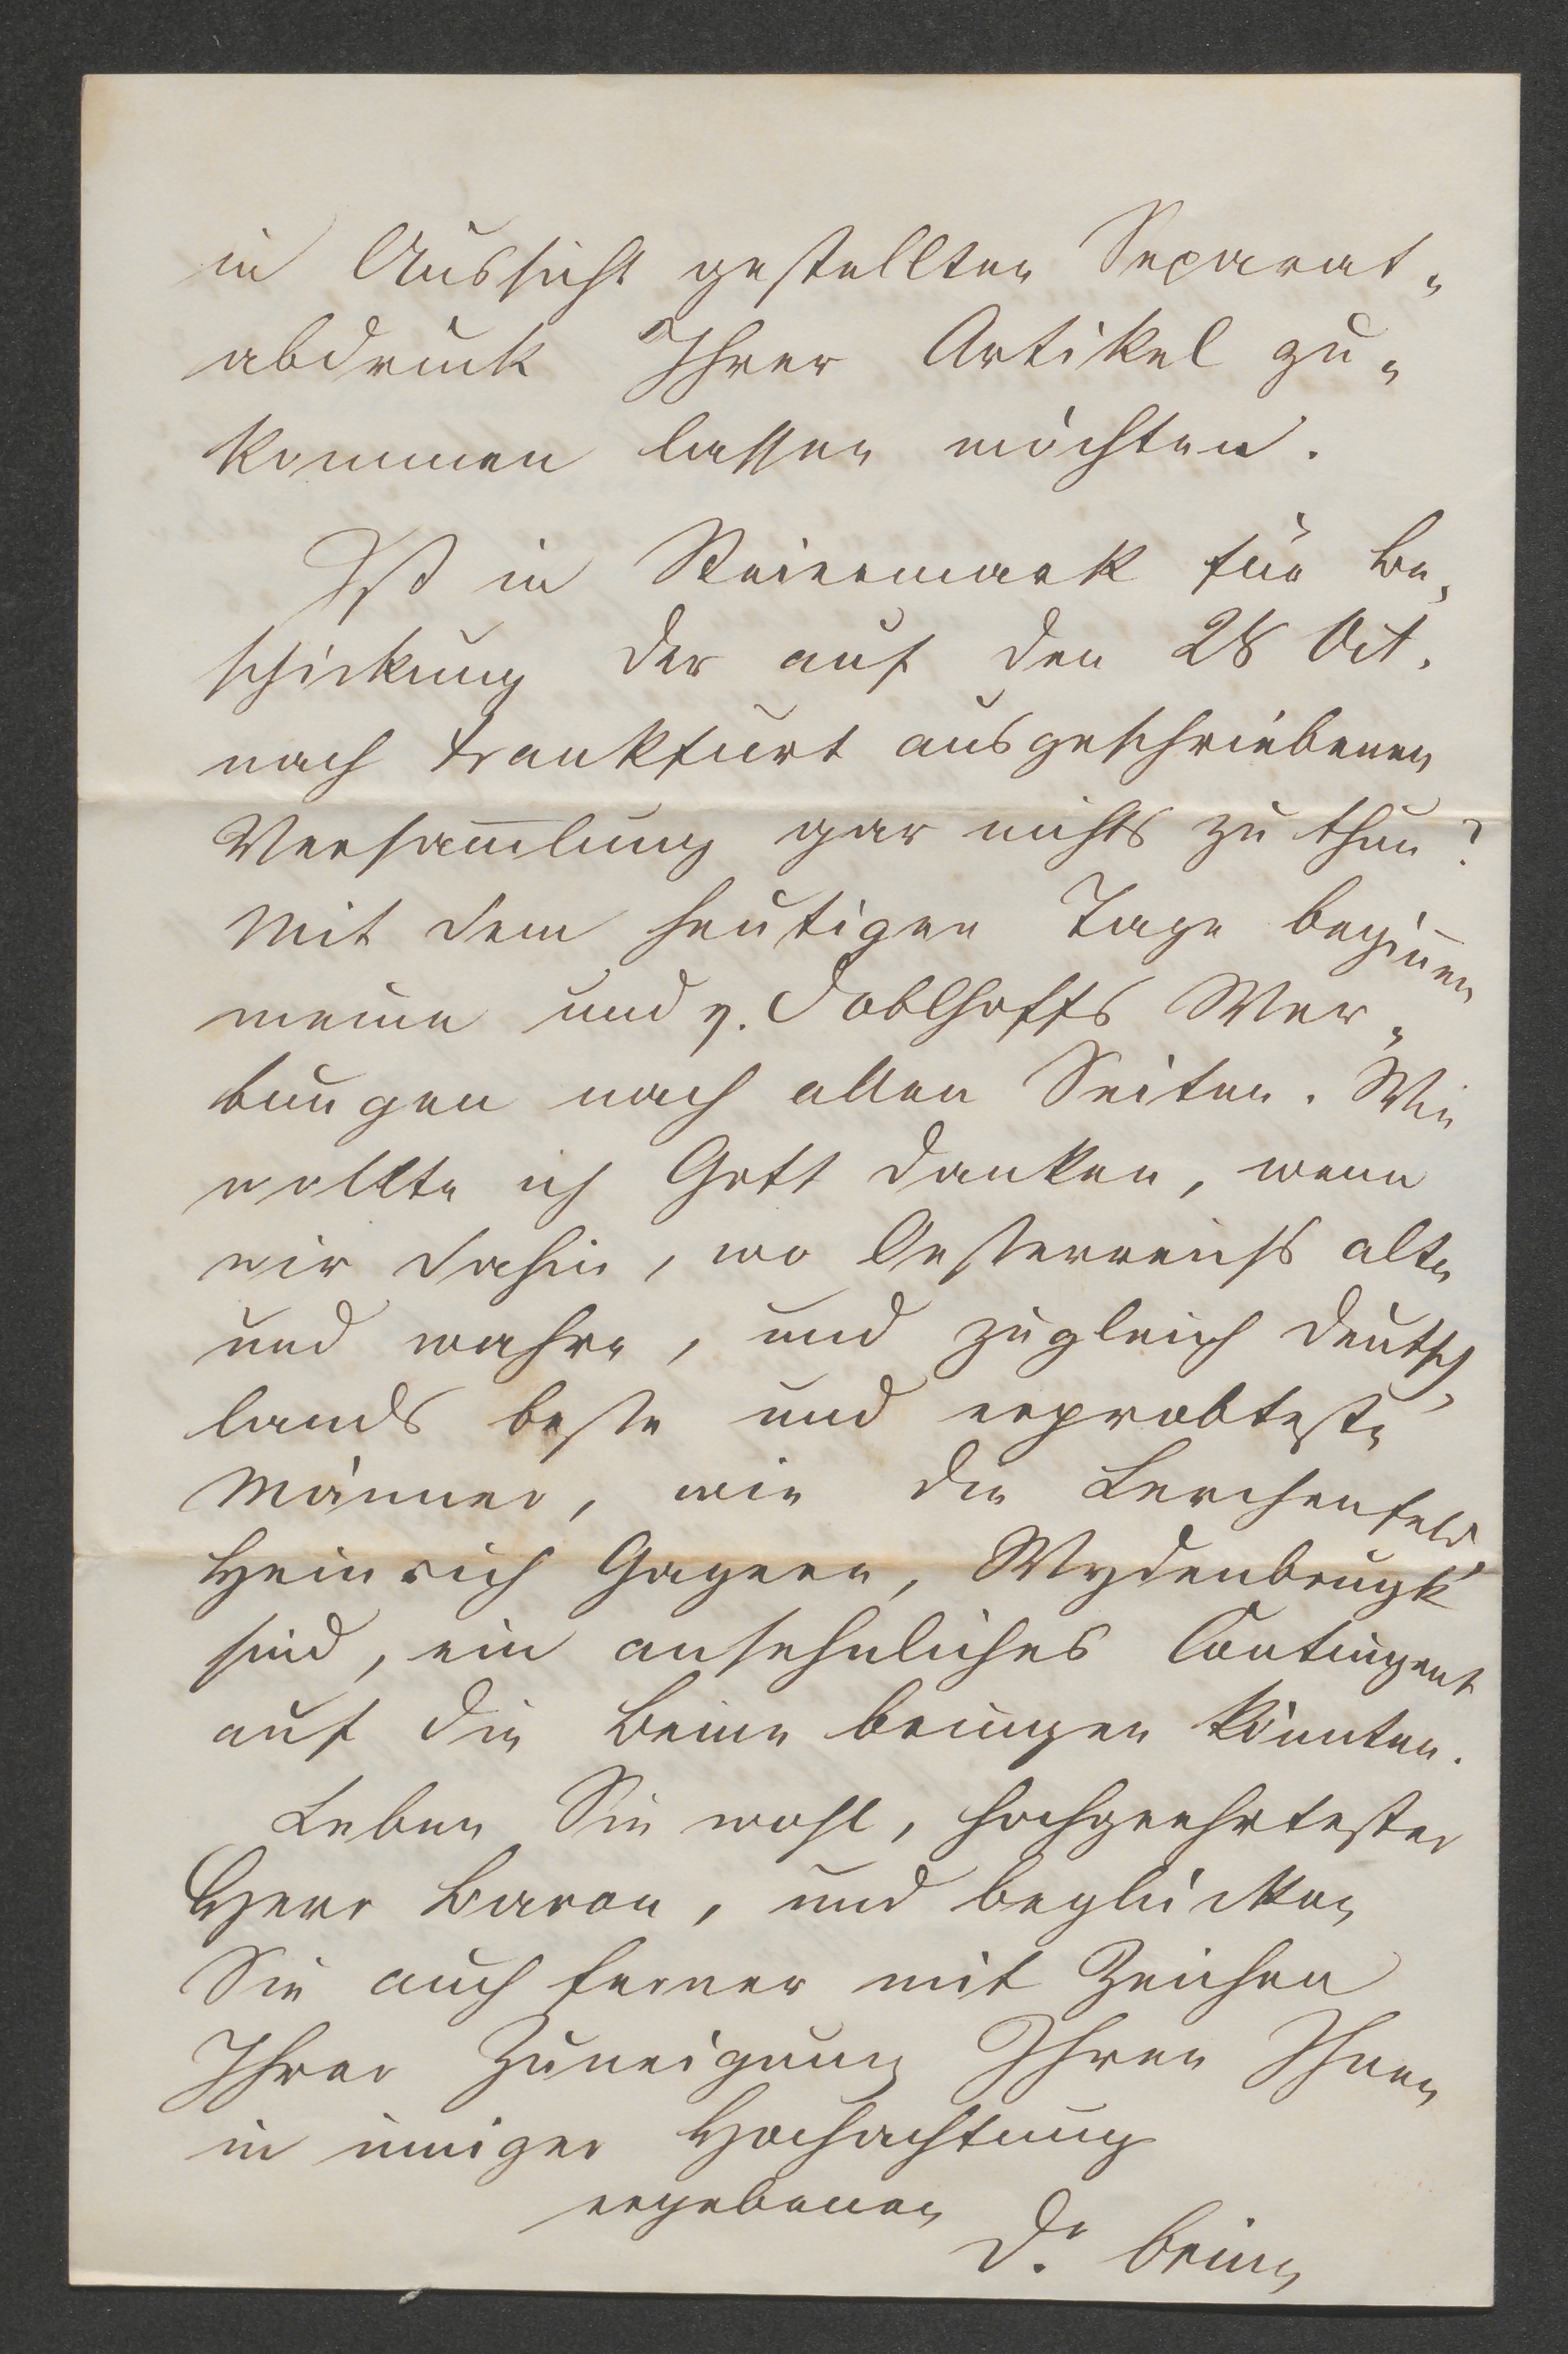 in Aussicht gestellten Separat-
abdruck Ihrer Artikel zu-
kommen lassen möchten.
Ist in Steiermark für Be-
schickung der auf den 28 Oct.
nach Frankfurt ausgeschriebenen
Versam̅lung gar nichts zu thun?
Mit dem heutigen Tage begin̅en
meine und v. Doblhoffs Wer-
bungen nach allen Seiten. Wie
wollte ich Gott danken, wenn
wir dahin, wo Oesterreichs alte
und wahre, und zugleich Deutsch-
lands beste und erprobteste
Männer, wie die Lerchenfeld,
Heinrich Gagern, Wydenbrugk
sind, ein ansehnliches Contingent
auf die Beine bringen könnten.
Leben Sie wohl, hochgeehrtester
Herr Baron, und beglücken
Sie auch ferner mit Zeichen
Ihrer Zuneigung Ihren Ihnen
in inniger Hochachtung
ergebenen
Dr. Brinz